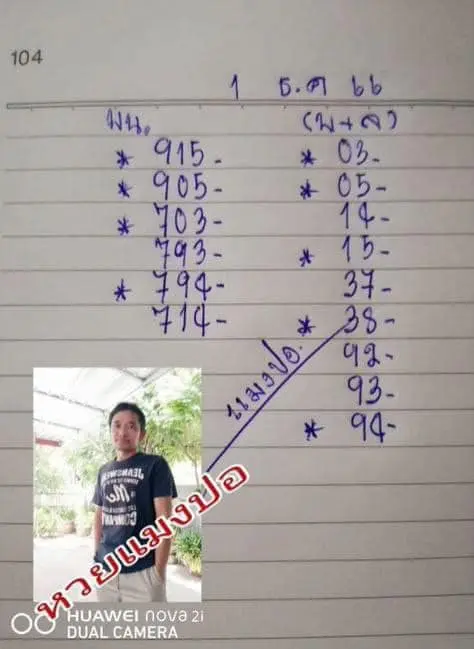 104
1 ธ.ค 66
บน. (บ+ล)
* 915- * 03-
* 905- * 05-
* 703- 14-
793- * 15-
* 794- 37-
714- * 38-
92-
93-
* 94-
แมงปอ.
หวยแมงปอ
JEANSWEAR
Me
COMPANY
HUAWEI nova 2i
DUAL CAMERA